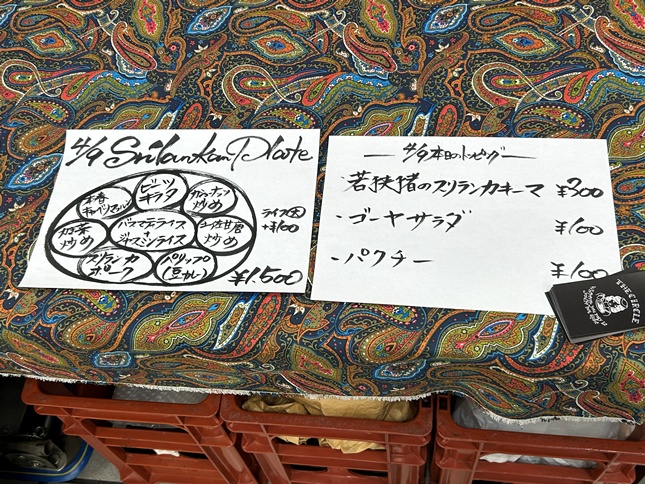 4/9 Srilankan Plate
ビーツ
キラタ
炒め
キャベツマッルン
炒め
バスマティライス
+
ジャスミンライス
土佐甘唐
炒め
スリランカ
ポーク
パリップ
(豆カレー)
ライス(大)
+¥100
¥1.500
4/9 本日のトッピング
・若狭猪のスリランカキーマ ¥300
・ゴーヤサラダ ¥100
・パクチー ¥100
THE CIRCLE